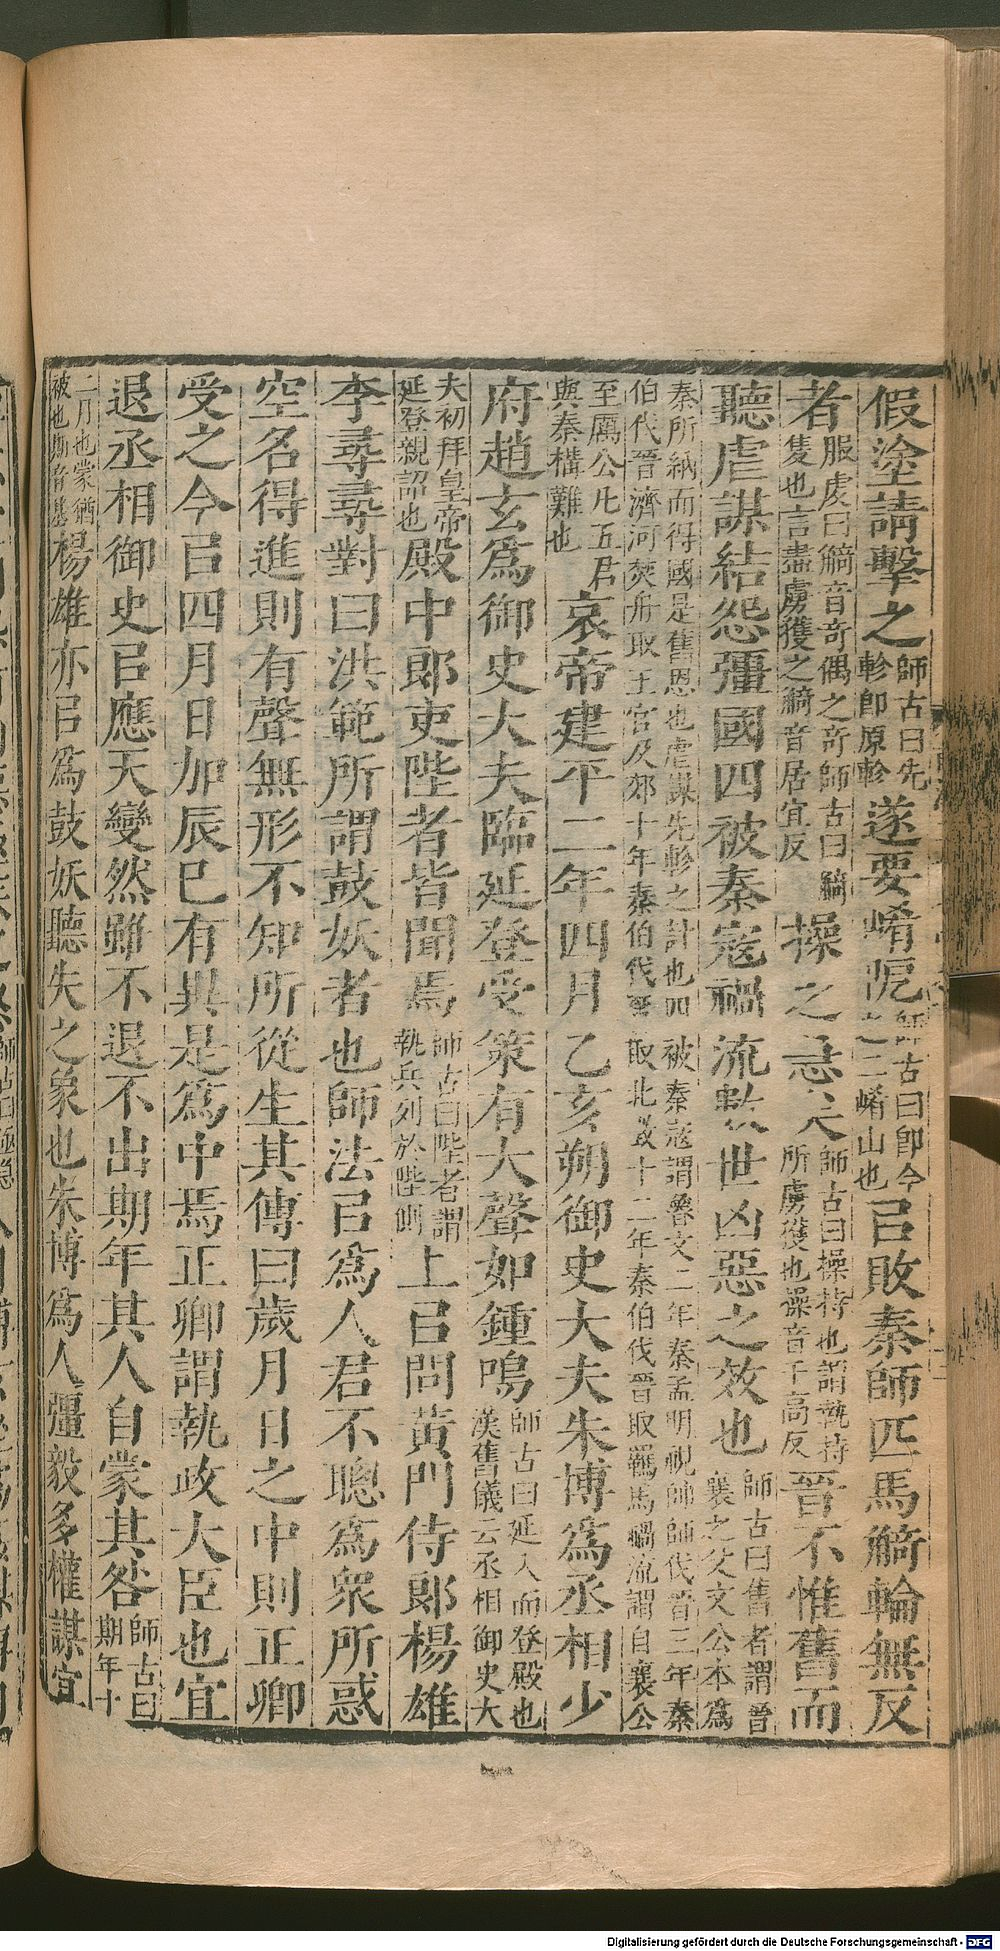 假塗請擊之師古曰先軫即原軫遂要崤阸師古曰即今之二崤山也㠯敗秦師匹馬觭輪無反
者服虔曰觭音奇偶之奇師古曰觭隻也言盡虜獲之觭音居宜反操之急矣師古曰操持也謂執持所虜獲也操音千高反晉不惟舊而
聽虐謀結怨彊國四被秦寇禍流數世凶惡之效也師古曰舊者謂晉襄之父文公本為
秦所納而得國是舊恩也虐謀先軫之計也四被秦寇謂魯文二年秦孟明視帥師伐晉三年秦伯伐晉濟河焚舟取王官及郊十年秦伯伐晉取北徵十二年秦伯伐晉取羈馬禍流謂自襄公
至厲公凡五君與秦構難也哀帝建平二年四月乙亥朔御史大夫朱博為丞相少
府趙玄為御史大夫臨延登受策有大聲如鍾鳴師古曰延入而登殿也漢舊儀云丞相御史大
夫初拜皇帝延登親詔也殿中郎吏陛者皆聞焉師古曰陛者謂執兵列於陛側上㠯問黃門侍郎楊雄
李尋尋對曰洪範所謂鼓妖者也師法㠯為人君不聰為眾所惑
空名得進則有聲無形不知所從生其傳曰歲月日之中則正卿
受之今㠯四月日加辰巳有異是為中焉正卿謂執政大臣也宜
退丞相御史㠯應天變然雖不退不出期年其人自蒙其咎師古曰期年十
二月也蒙猶被也期音基楊雄亦㠯為鼓妖聽失之象也朱博為人彊毅多權謀宜
Digitalisierung gefördert durch die Deutsche Forschungsgemeinschaft - DFG